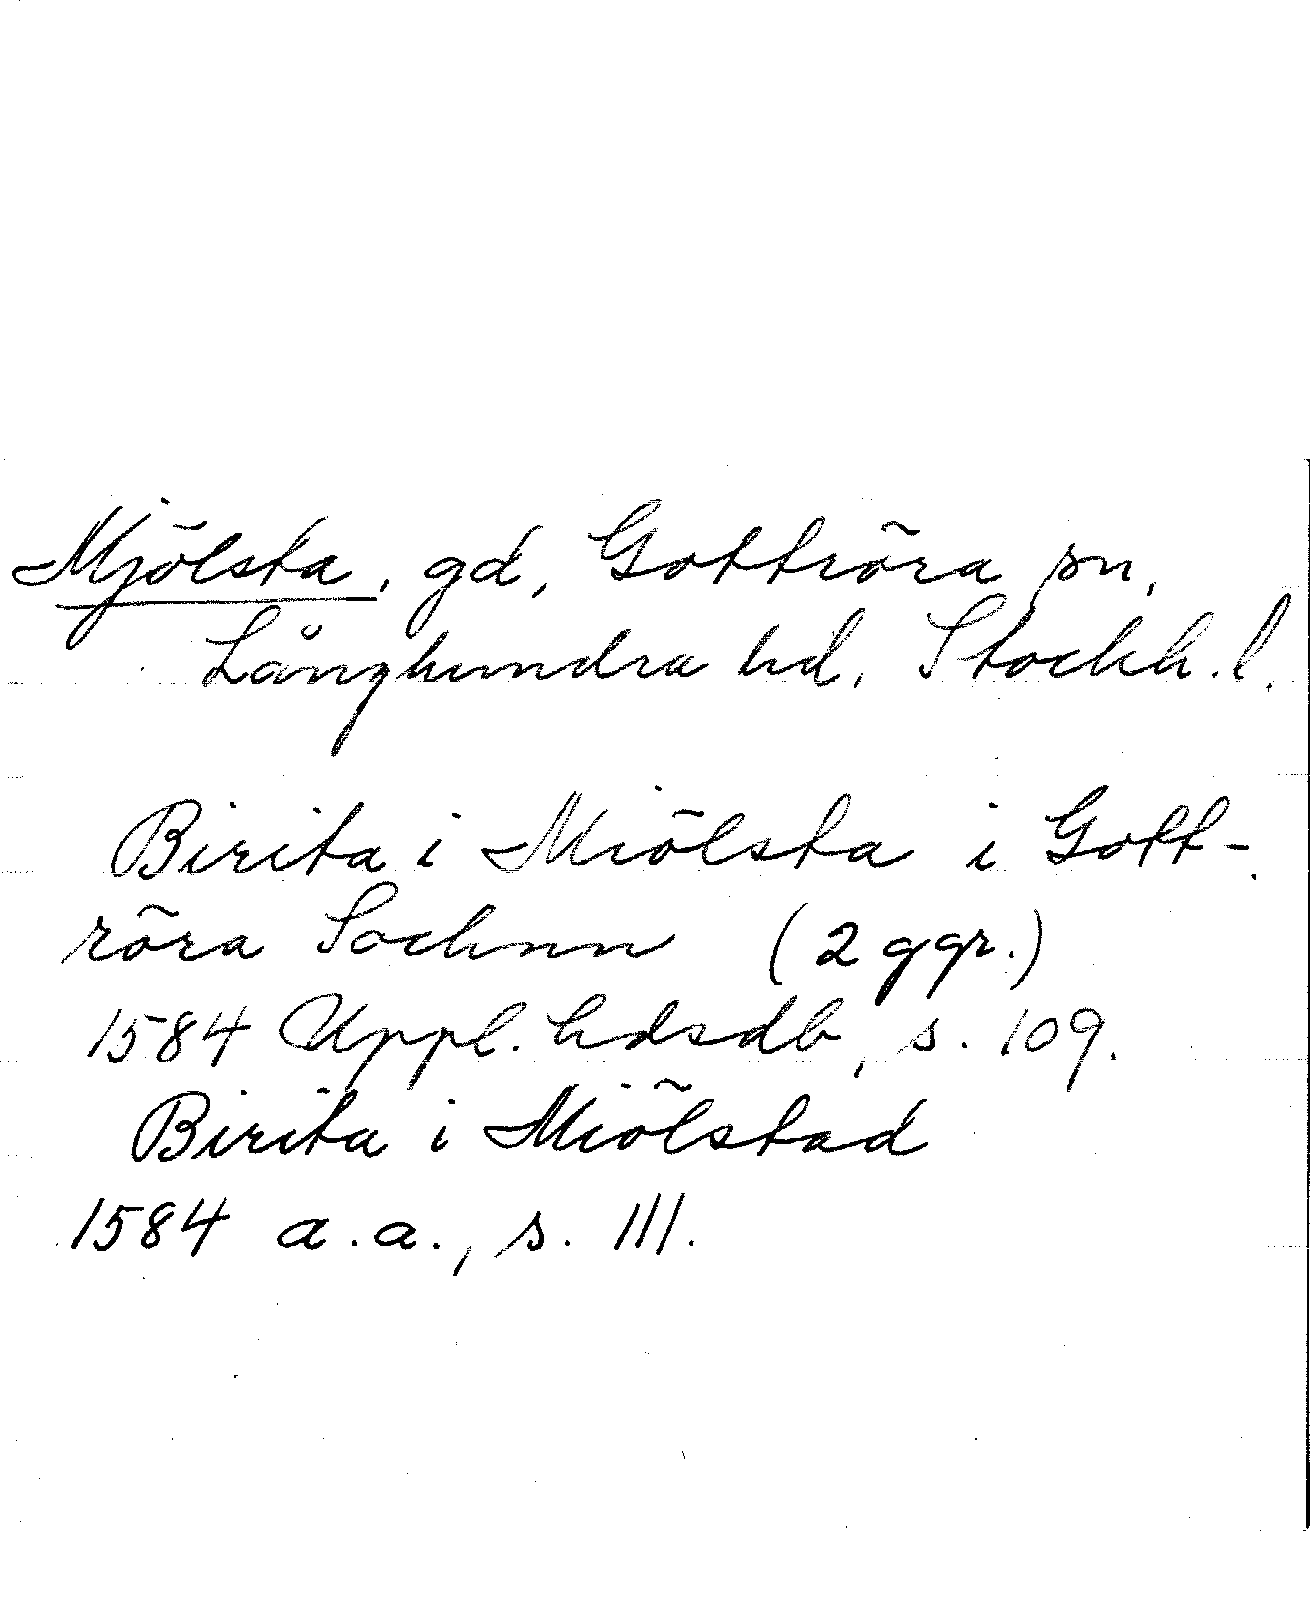 Mjölsta, gd, Gottröra sn,
Långhundra hd, Stockh. l.
Birita i Miölsta i Gott-
röra Sochnn (2 ggr.)
1584 Uppl. hdsdb, s. 109.
Birita i Miölstad
1584 a.a., s. 111.